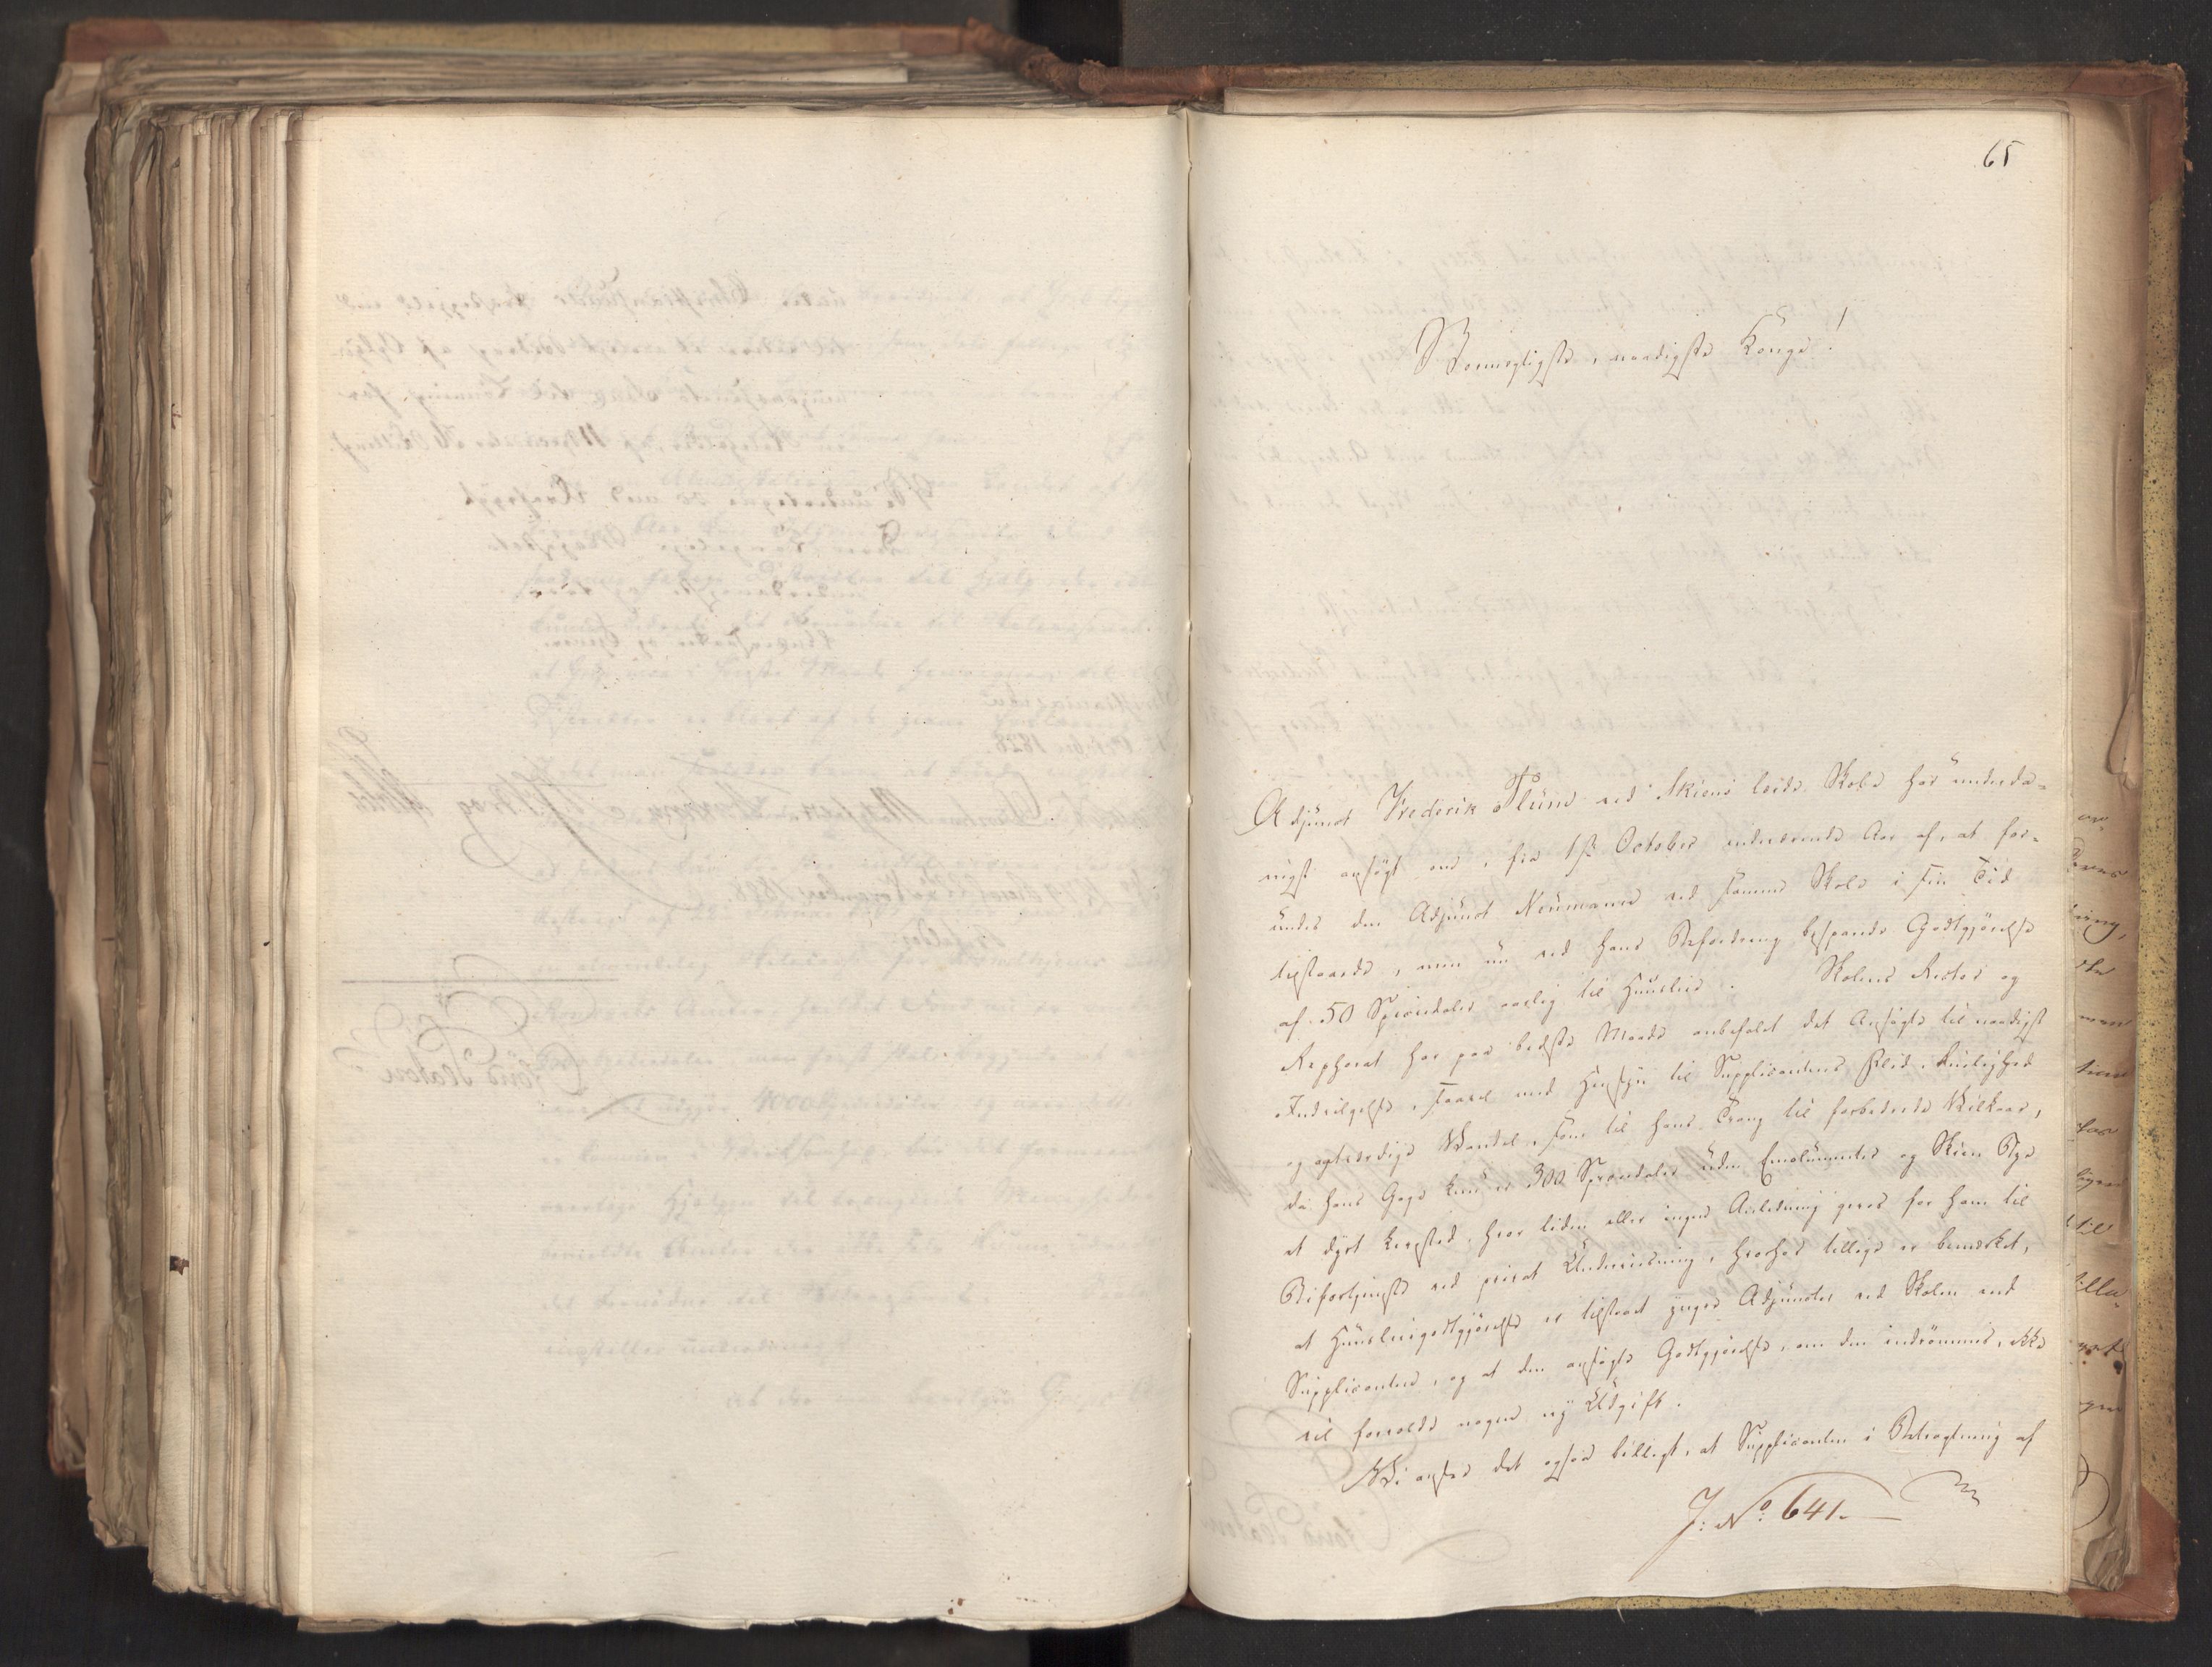 65
Stormægtigste, naadigste Konge!
Adjunct Frederik Flüne ved Skiens lærde Skole har underda-
nigst ansøgt om, fra 1ste October indeværende Aar af, at for-
undes den Adjunct Neumann ved samme Skole i sin Tid
tilstaaede, men nu ved hans Befordring besparede Godtgjørelse
af 50 Speciedaler aarlig til Huusleie. Skolens Rector og
Ephorat har paa bedste Maade anbefalet det Ansøgte til naadigst
Indvilgelse, saavel med Hensyn til Supplicantens Flid, Duelighed
og agtværdige Vandel, som til hans Trang til forbedrede Vilkaar,
da hans Gage kun er 300 Speciedaler uden Emolumenter og Skien Bye
et dyrt Levested, hvor liden eller ingen Anledning gives for ham til
Bifortjeneste ved privat Underviisning, hvorhos tillige er bemærket,
at Huusleiegodtgjørelse er tilstaaet yngre Adjuncter ved Skolen end
Supplicanten, og at den ansøgte Godtgjørelse, om den indrømmes, ikke
vil forvolde nogen ny Udgift.
Vi ansee det ogsaa billigt, at Supplicanten i Betragtning af
J: No. 641.